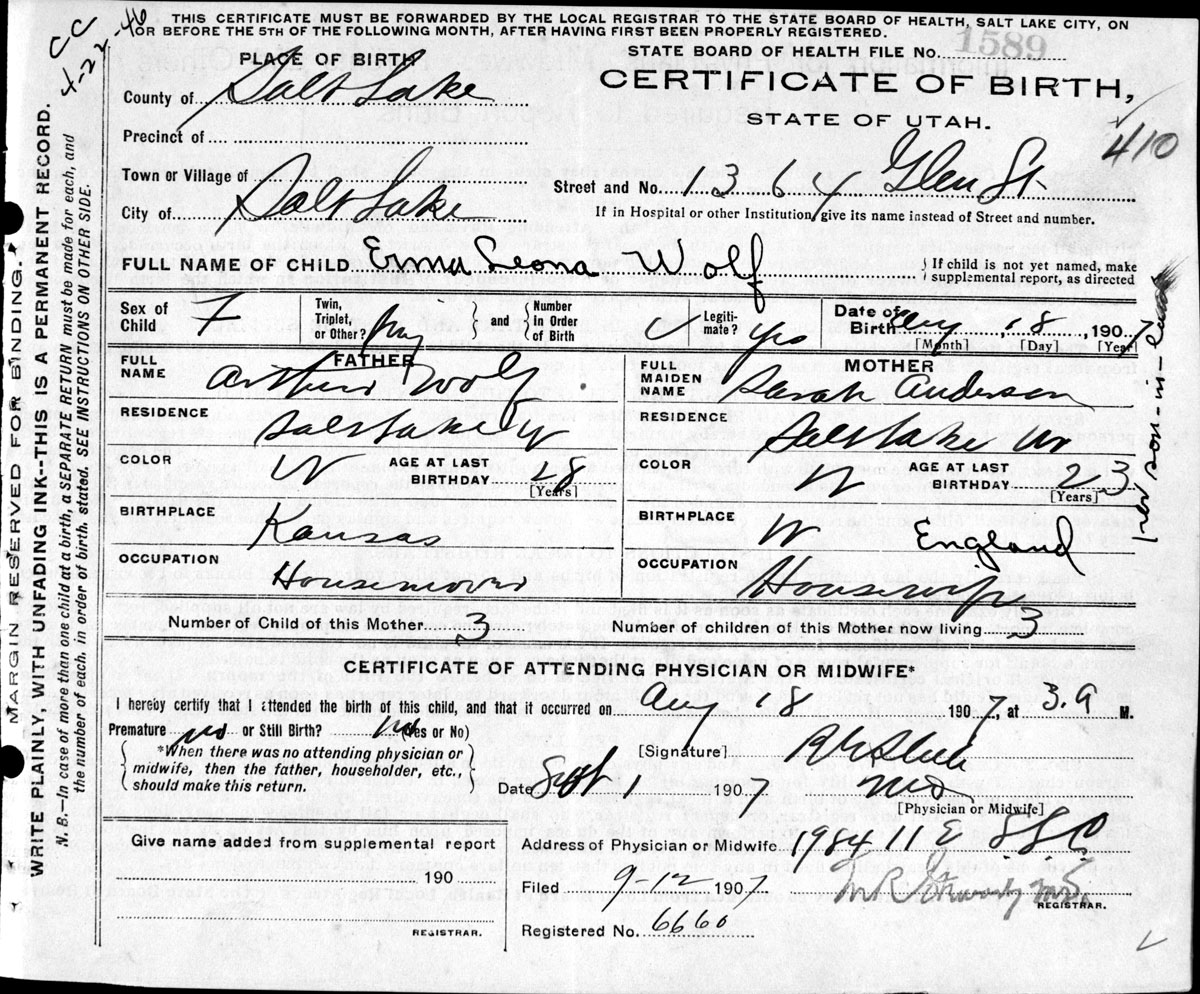 THIS CERTIFICATE MUST BE FORWARDED BY THE LOCAL REGISTRAR TO THE STATE BOARD OF HEALTH, SALT LAKE CITY, ON
OR BEFORE THE 5TH OF THE FOLLOWING MONTH, AFTER HAVING FIRST BEEN PROPERLY REGISTERED.
CC
4-22-46
STATE BOARD OF HEALTH FILE No. 1589
PLACE OF BIRTH
CERTIFICATE OF BIRTH,
STATE OF UTAH.
410
County of Salt Lake
Precinct of
Town or Village of
Street and No. 1364 Glen St.
City of Salt Lake
If in Hospital or other Institution, give its name instead of Street and number.
FULL NAME OF CHILD Erma Leona Wolf
If child is not yet named, make
supplemental report, as directed
Sex of Child F
Twin, Triplet, or Other?
and Number In Order of Birth
Legitimate? Yes
Date of Birth Aug 18, 1907
[Month] [Day] [Year]
FATHER
FULL NAME Arthur Wolf
RESIDENCE Salt Lake
COLOR W AGE AT LAST BIRTHDAY 28
[Years]
BIRTHPLACE Kansas
OCCUPATION Housemover
MOTHER
FULL MAIDEN NAME Sarah Anderson
RESIDENCE Salt Lake
COLOR W AGE AT LAST BIRTHDAY 23
[Years]
BIRTHPLACE England
OCCUPATION Housewife
Number of Child of this Mother 3
Number of children of this Mother now living 3
CERTIFICATE OF ATTENDING PHYSICIAN OR MIDWIFE*
I hereby certify that I attended the birth of this child, and that it occurred on Aug 18 1907, at 3. a M.
Premature no or Still Birth? no (Yes or No)
*When there was no attending physician or
midwife, then the father, householder, etc.,
should make this return.
[Signature]
Date Sept 1 1907
MD
[Physician or Midwife]
Give name added from supplemental report
190
REGISTRAR.
Address of Physician or Midwife 1984 11 E S.L.C
Filed 9-12 1907
REGISTRAR.
Registered No. 6660
MARGIN RESERVED FOR BINDING.
WRITE PLAINLY, WITH UNFADING INK--THIS IS A PERMANENT RECORD.
N. B.—In case of more than one child at a birth, a SEPARATE RETURN must be made for each, and
the number of each, in order of birth, stated. SEE INSTRUCTIONS ON OTHER SIDE.
son-in-law